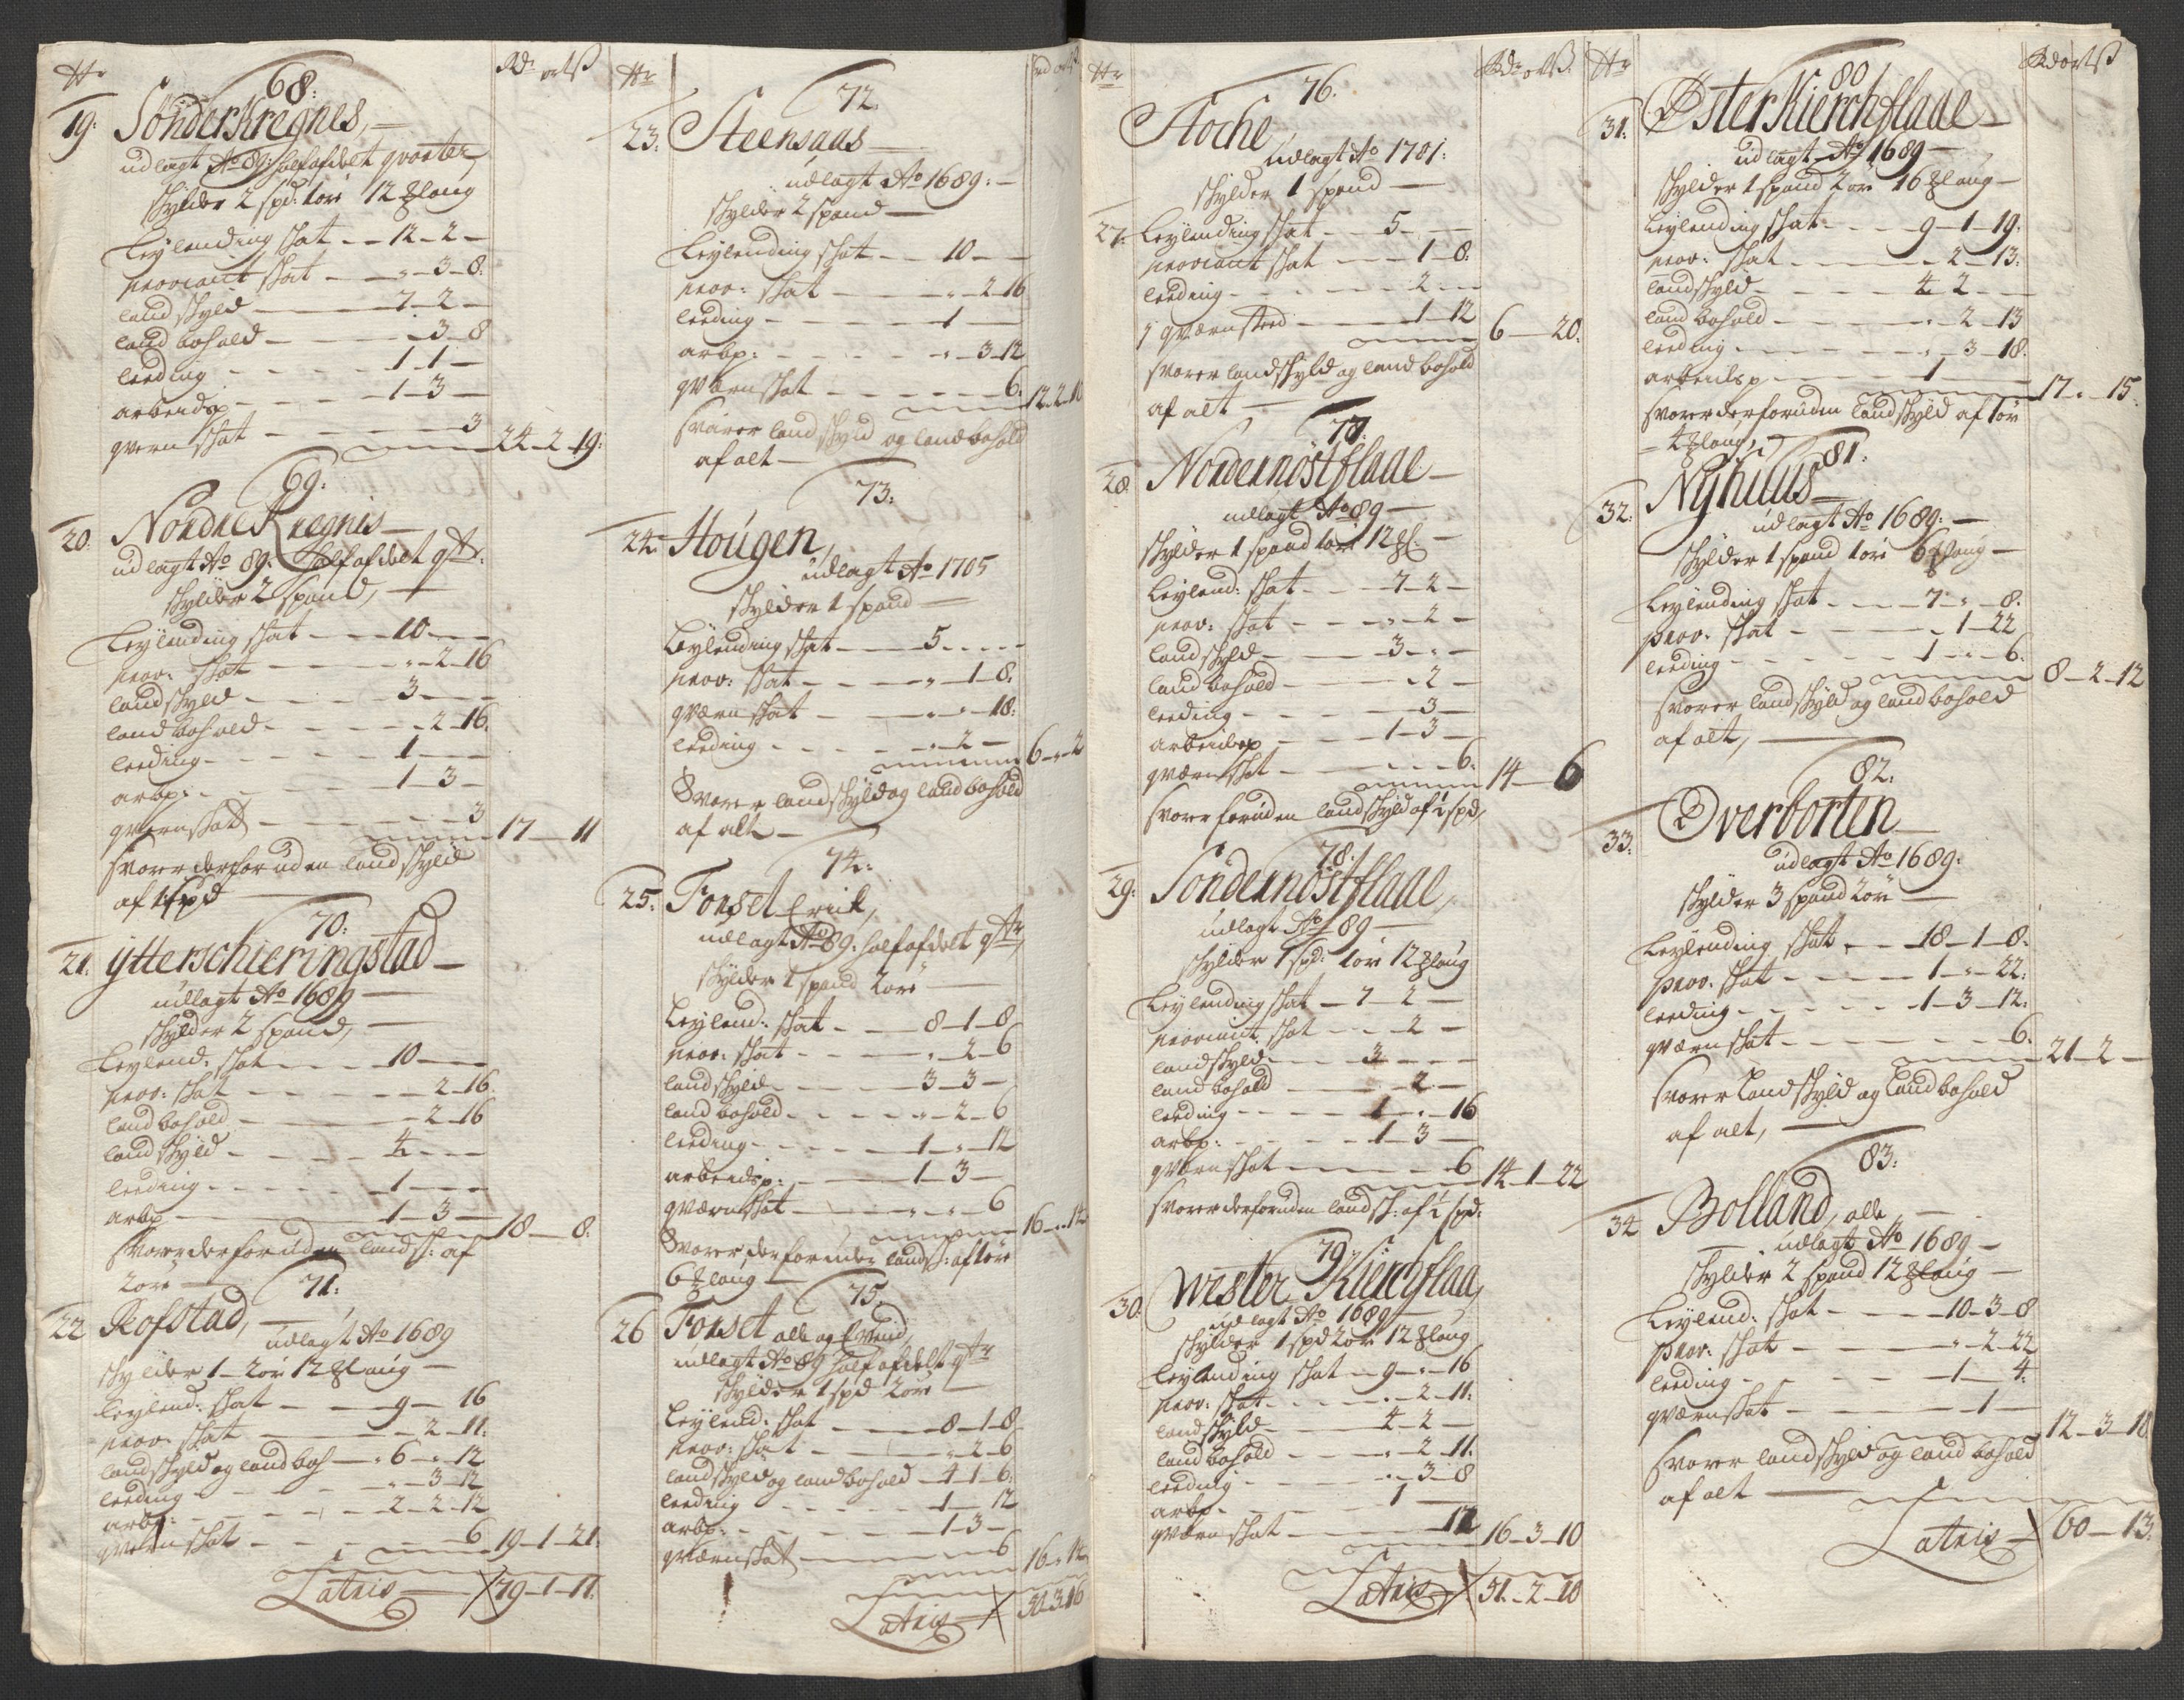 Nr Rdr ort ß
68:
19: SönderKregnes,
udlagt Ao 89: halfafdeelt qvarter
skylder 2 spd: 1 ör 12 ℔ laug
Leylending skat - - 12 - 2 -
proviant skat - - " - 3 - 8:
landskyld - 7 - 2 -
land bohold - - 3 - 8
leeding - - 1 - 1 -
arbeidsp - - 1 - 3 -
qvern skat - - 3
24 - 2 - 19:
69:
20: Nordre Kregnis
udlagt Ao 89: halfafdelt qtr:
skylder 2 spand,
Leylending skat - - 10 - -
prov: skat - " - 2 - 16
landskyld - 3 - -
land bohold - - 2 - 16
leeding - 1 - -
arbp: - 1 - 3 -
qvern skat - - 3
17 - 11
svarer derforuden land skyld
af 1 spd
70:
21: ytterschieringstad
udlagt Ao 1689
skylder 2 spand,
Leylend: skat - 10 - -
prov: skat - - 2 - 16
land bohold - 2 - 16
land skyld - 4 - -
leeding - 1 - -
arbp - 1 - 3 -
18 - 8:
svarer derforuden landsk: af
2 ör
71:
22 Rofstad,
udlagt Ao 1689
skylder 1 - 2 ör 12 ℔ laug
Leylend: skat - 9 - 16
prov: skat - - 2 - 11:
landskyld og land boh - " 6 - " - 12
leeding - " - 3 - 12
arbp: - 2 - 2 - 12
qvern skat - - 6
19 - 1 - 21:
Latris 79 - 1 - 11:
Nr rd ort ß
72.
23: Steensaas
udlagt Ao 1689:
skylder 2 spand
Leylending skat - 10 - -
prov: skat - " - 2 - 16
leeding - 1 -
arbp: - " - 3 - 12
qværn skat - - 6:
12 - 2 - 10
svarer land skyld og land bohold
af alt
73:
24: Hougen,
udlagt Ao 1705
skylder 1 spand
Leylending skat - 5 - - -
prov: skat - " - 1 - 8:
qværn skat - " - " - 18:
leeding - " - 2 -
6 - " - 2
Svarer landskyld og land bohold
af alt
74:
25: Fonset Erick,
udlagt Ao 89: halfafdeelt qtr
skylder 1 spand 2 ör
Leylend: skat - - 8 - 1 - 8
prov: skat - " - 2 - 6
landskyld - 3 - 3 -
land bohold - " - 2 - 6
leeding - 1 - " - 12
arbeidsp: - 1 - 3 -
qværn skat - " - " - 6
16 - " - 14
Svarer derforuden landsk: af 1 ör
6 ℔ laug
75
26 Fonset olle og Evend,
udlagt Ao 89 halfafdelt qtr
skylder 1 spd 2 ör
Leylend: skat - 8 - 1 - 8
prov: skat - " - 2 - 6
landskyld og land bohold - 4 - 1 - 6:
leeding - 1 - 12
arbp: - 1 - 3 -
qværnskat - - 6
16 - " - 14
Latris
Nr Rdr ort ß:
76.
Stoche
udlagt Ao 1701:
skylder 1 spand
27: Leylending skat - 5 - -
proviant skat - - 1 - 8:
leeding - 2 -
1 qværn sted - 1 - 12
6 - 20:
svarer landskyld og land bohold
af alt
77:
28 Nordernöstflaae
udlagt Ao 89
skylder 1 spand 1 ör 12 ℔:
Leylend: skat - - 7 - 2 -
prov: skat - - " - 2 -
land skyld - 3 - " -
land bohold - " 2 -
leeding - 3 -
arbeidsp - 1 - 3 -
qværn skat - - 6:
14 - 6
svarer foruden landskyld af 1 spd,
78:
29: Söndernöstflaae,
udlagt Ao 89
skylder 1 spd: 1 ör 12 ℔ laug
Leylending skat - 7 - 2 -
proviant skat - - 2 -
landskyld - 3 - -
land bohold - 2 -
leeding - 1 - " - 16
arbp: - 1 - 3 -
qværn skat - - 6
14 - 1 - 22
svarer derforuden landsk: af 1 spd:
79
30. Wester Kierchflaa,
udlagt Ao 1689
skylder 1 spd 2 ör 12 ℔ laug
Leylending skat - 9 - " - 16
prov: skat - " - 2 - 11:
landskyld - 4 - 2 -
land bohold - " - 2 - 11:
leeding - " - 3 - 8
arbp - 1 -
qværn skat - 12
16 - 3 - 10
Latris 51. - 2 - 10
Nr Rd ort ß
80
31. ÖsterKierchflaae
udlagt Ao 1689
skylder 1 spand 2 ör 16 ℔ laug
Leylending skat - - 9 - 1 - 19:
prov: skat - - 2 - 13:
landskyld - 4 - 2 -
land bohold - " - 2 - 13
leeding - " - 3 - 18:
arbeidsp - 1
17 - " - 15
svarer derforuden landskyld af 1 ör
4 ℔ laug
81:
32: Nyhuus
udlagt Ao 1689:
skylder 1 spand 1 ör 6 ℔ laug
Leylending skat - 7 - " - 8:
prov: skat - - 1 - 22
leeding - 1 - " - 6:
8 - 2 - 12
svarer landskyld og land bohold
af alt,
82:
33: Overborten
udlagt Ao 1689:
skylder 3 spand 2 ör
Leylending skat - - 18 - 1 - 8:
prov: skat - 1 - " - 22:
leeding - 1 - 3 - 12:
qværn skat - - 6:
21 - 2 -
svarer Landskyld og Land bohold
af alt,
83:
34 Bolland, olle
udlagt Ao 1689
skylder 2 spand 12 ℔ laug
Leylend: skat - - 10 - 3 - 8
prov: skat - " - 2 - 22
leeding - 1 - 4:
qværnskat - 1 -
12 - 3 - 10
svarer landskyld og land bohold
af alt
Latris 60 - 13: